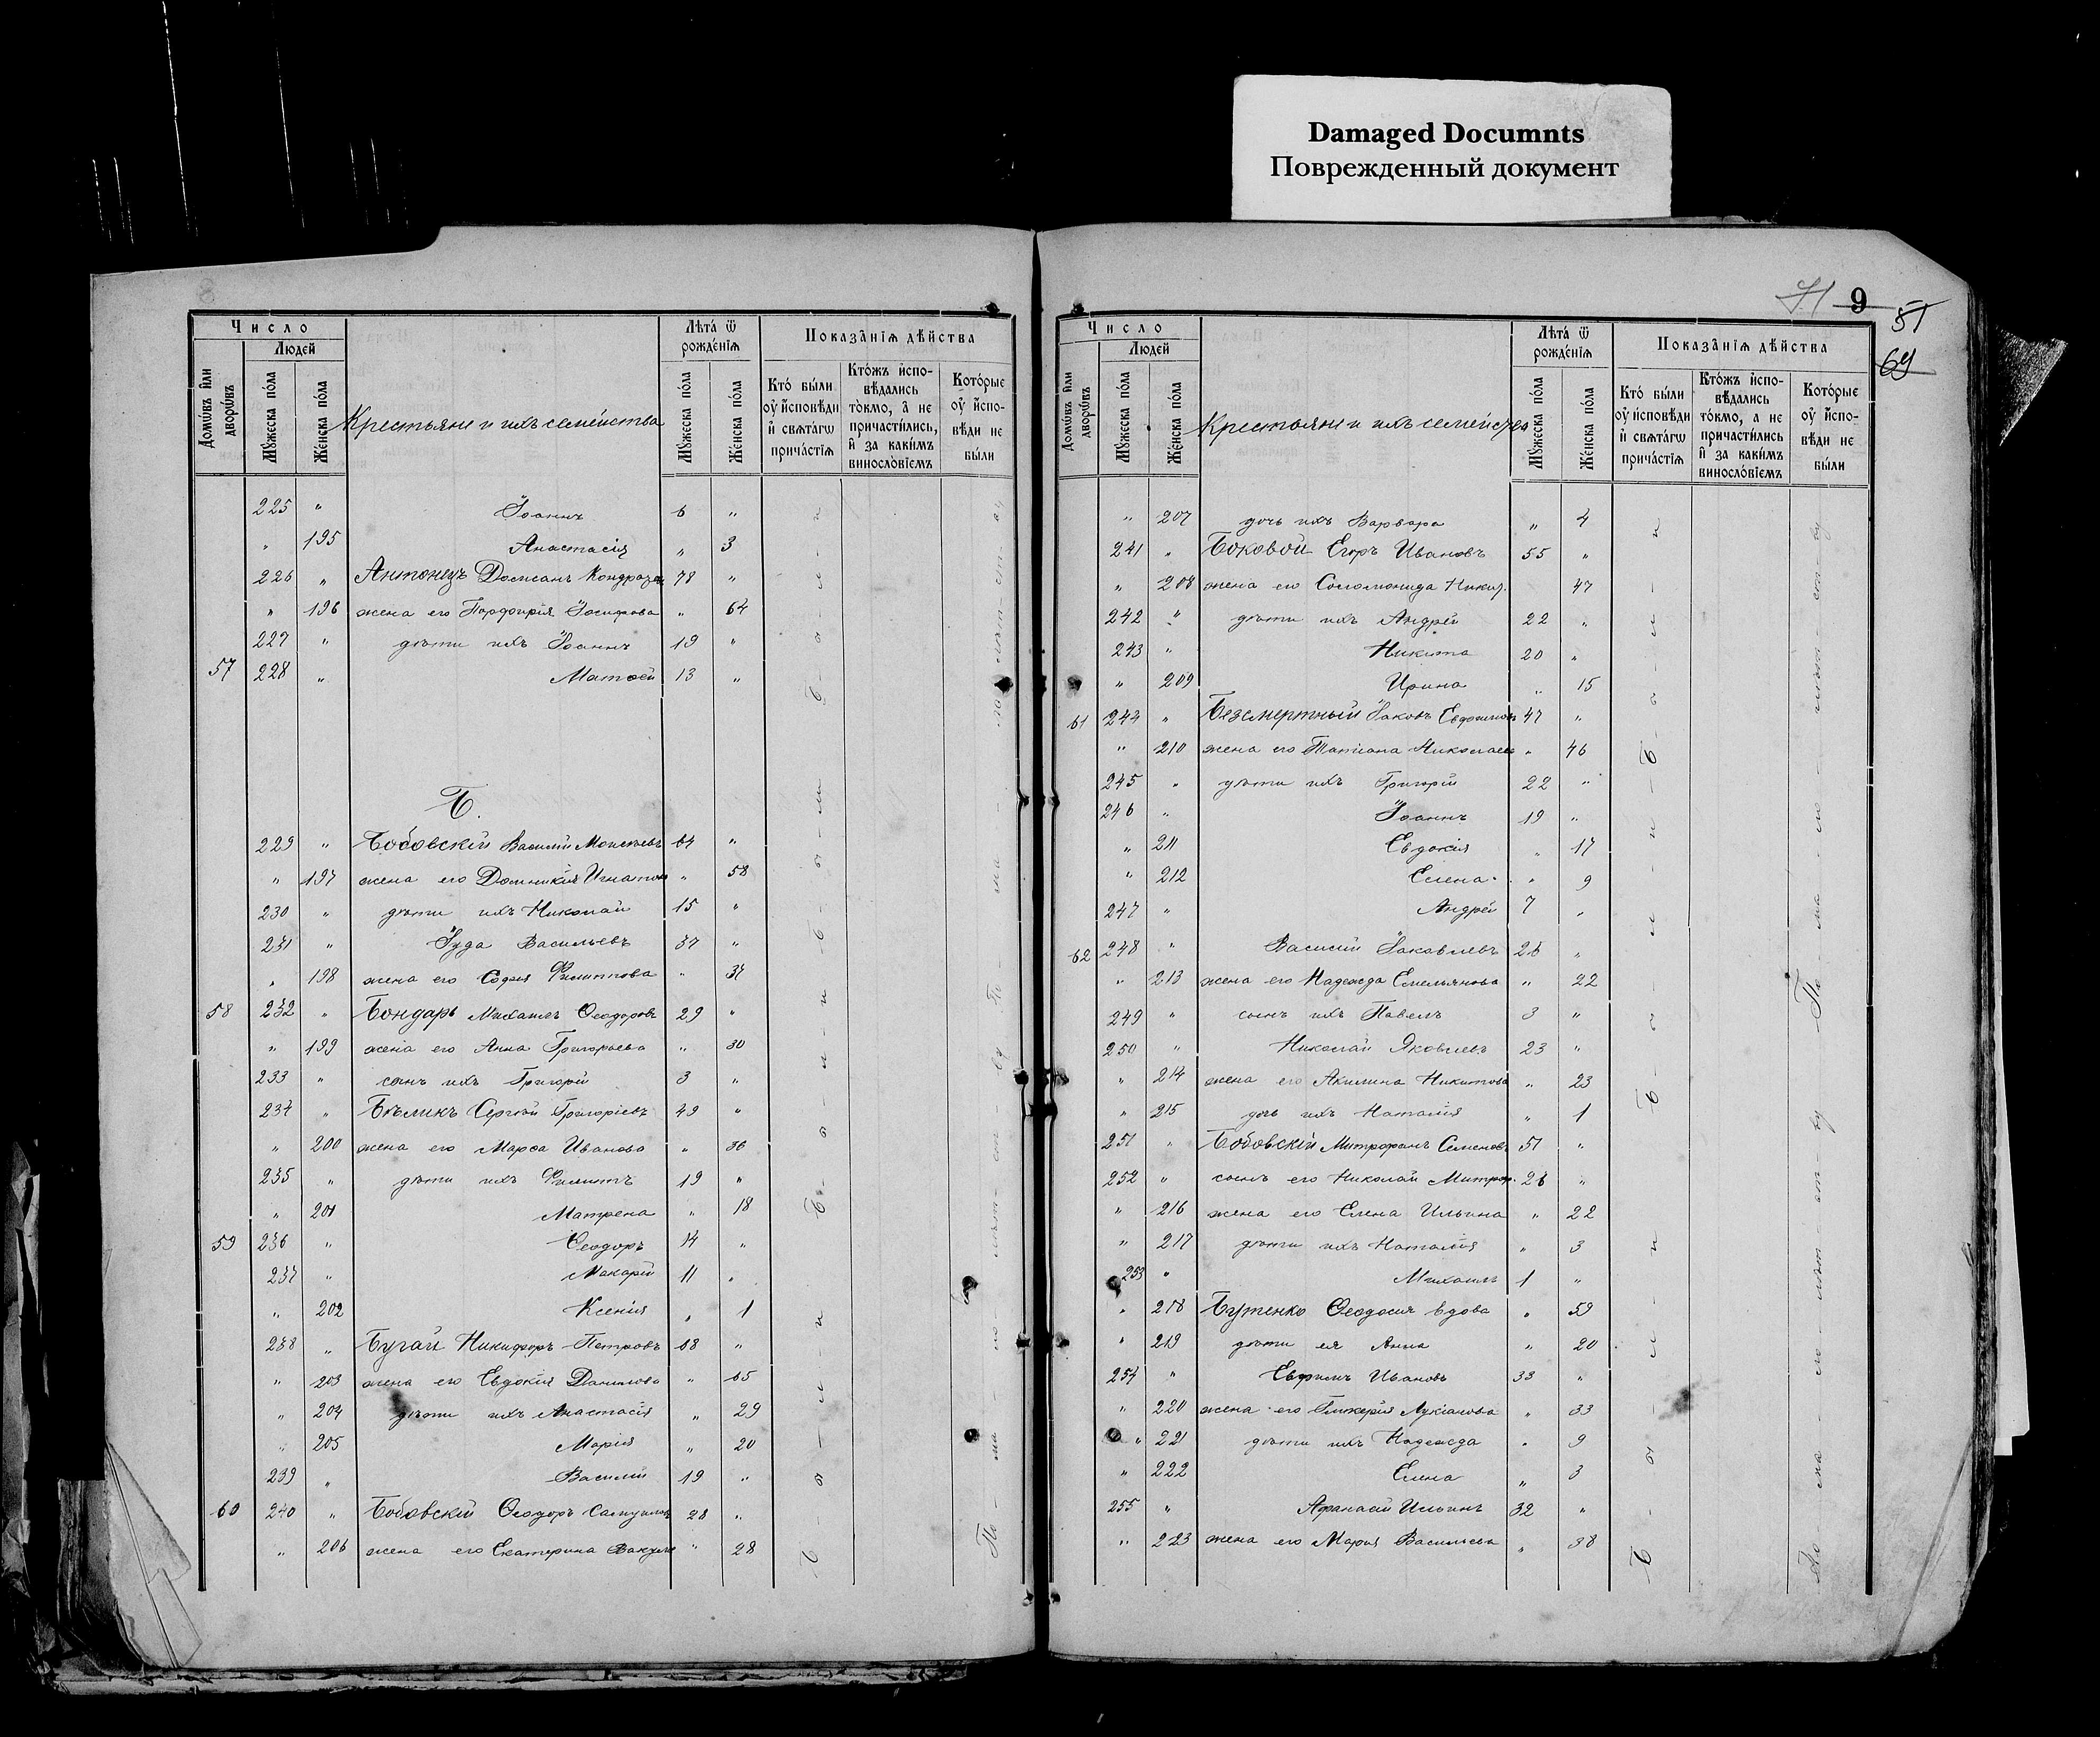 Damaged Documnts
Поврежденный документ
8
Число
Людей
Домѡ́въ и҆лѝ дворѡ́въ
Мꙋ́жеска по́ла
Же́нска по́ла
Крестьяне и ихъ семейства
Лѣ́та ѿ рожде́нїѧ
Мꙋ́жеска по́ла
Же́нска по́ла
Показа̑нїѧ дѣ́йства
Кто̀ бы́ли оу҆ и҆сповѣ́ди и҆ свѧта́гѡ прича́стїѧ
Кто́жъ и҆спо-вѣ́дались то́кмо, а҆ не причасти́лись, и҆ за каки́мъ винослові́емъ
Кото́рые оу҆ и҆спо-вѣ́ди не бы́ли
225 " Іоаннъ 6 "
" 195 Анастасія " 3
226 " Антонецъ Домеанъ Кондрат 78 "
" 196 жена его Порфирія Іосифова " 64
227 " дѣти ихъ Іоаннъ 19 "
57 228 " Матѳей 13 "
Б.
229 " Бобовскій Василій Моисеевъ 64 "
" 197 жена его Домникія Игнатова " 58
230 " дѣти ихъ Николай 15 "
231 " Іуда Васильевъ 37 "
" 198 жена его Софія Филиппова " 37
58 232 " Бондарь Михаилъ Ѳеодоровъ 29 "
" 199 жена его Анна Григорьева " 30
233 " сынъ ихъ Григорій 3 "
234 " Бѣликъ Сергѣй Григоріевъ 49 "
" 200 жена его Марѳа Иванова " 36
235 " дѣти ихъ Филиппъ 19 "
" 201 Матрена " 18
59 236 " Ѳеодоръ 14 "
237 " Макарій 11 "
" 202 Ксенія " 1
238 " Бугай Никифоръ Петровъ 68 "
" 203 жена его Евдокія Данилова " 65
" 204 дѣти ихъ Анастасія " 29
" 205 Марія " 20
239 " Василій 19 "
60 240 " Бобовскій Ѳеодоръ Самуилов 28 "
" 206 жена его Екатерина Вакуле " 28
9
71
51
69
Число
Людей
Домѡ́въ и҆лѝ дворѡ́въ
Мꙋ́жеска по́ла
Же́нска по́ла
Крестьяне и ихъ семейства
Лѣ́та ѿ рожде́нїѧ
Мꙋ́жеска по́ла
Же́нска по́ла
Показа̑нїѧ дѣ́йства
Кто̀ бы́ли оу҆ и҆сповѣ́ди и҆ свѧта́гѡ прича́стїѧ
Кто́жъ и҆спо-вѣ́дались то́кмо, а не причасти́лись и҆ за каки́мъ винослові́емъ
Кото́рые оу҆ и҆спо-вѣ́ди не бы́ли
" 207 дочь ихъ Варвара " 4
241 " Боковой Егоръ Ивановъ 55 "
" 208 жена его Соломонида Никит. 47
242 " дѣти ихъ Андрей 22 "
243 " Никита 20 "
" 209 Ирина " 15
61 244 " Безсмертный Іаковъ Евфимов 47 "
" 210 жена его Татіана Николаев " 46
245 " дѣти ихъ Григорій 22 "
246 " Іоаннъ 19 "
" 211 Евдокія " 17
" 212 Елена " 9
247 " Андрей 7 "
62 248 " Василій Іаковлевъ 26 "
" 213 жена его Надежда Емельянова " 22
249 " сынъ ихъ Павелъ 3 "
250 " Николай Яковлевъ 23 "
" 214 жена его Акилина Никитова " 23
" 215 дочь ихъ Наталія " 1
251 " Бобовскій Митрофанъ Семеновъ 51 "
252 " сынъ его Николай Митроф. 26 "
" 216 жена его Елена Ильина " 22
" 217 дѣти ихъ Наталія " 3
253 " Михаилъ 1 "
" 218 Бутенко Ѳеодосія вдова " 59
" 219 дѣти ея Анна " 20
254 " Евфимъ Ивановъ 33 "
" 220 жена его Гликерія Лукіанова " 33
" 221 дѣти ихъ Надежда " 9
" 222 Елена " 3
255 " Афанасій Ильинъ 32 "
" 223 жена его Марія Васильева " 38